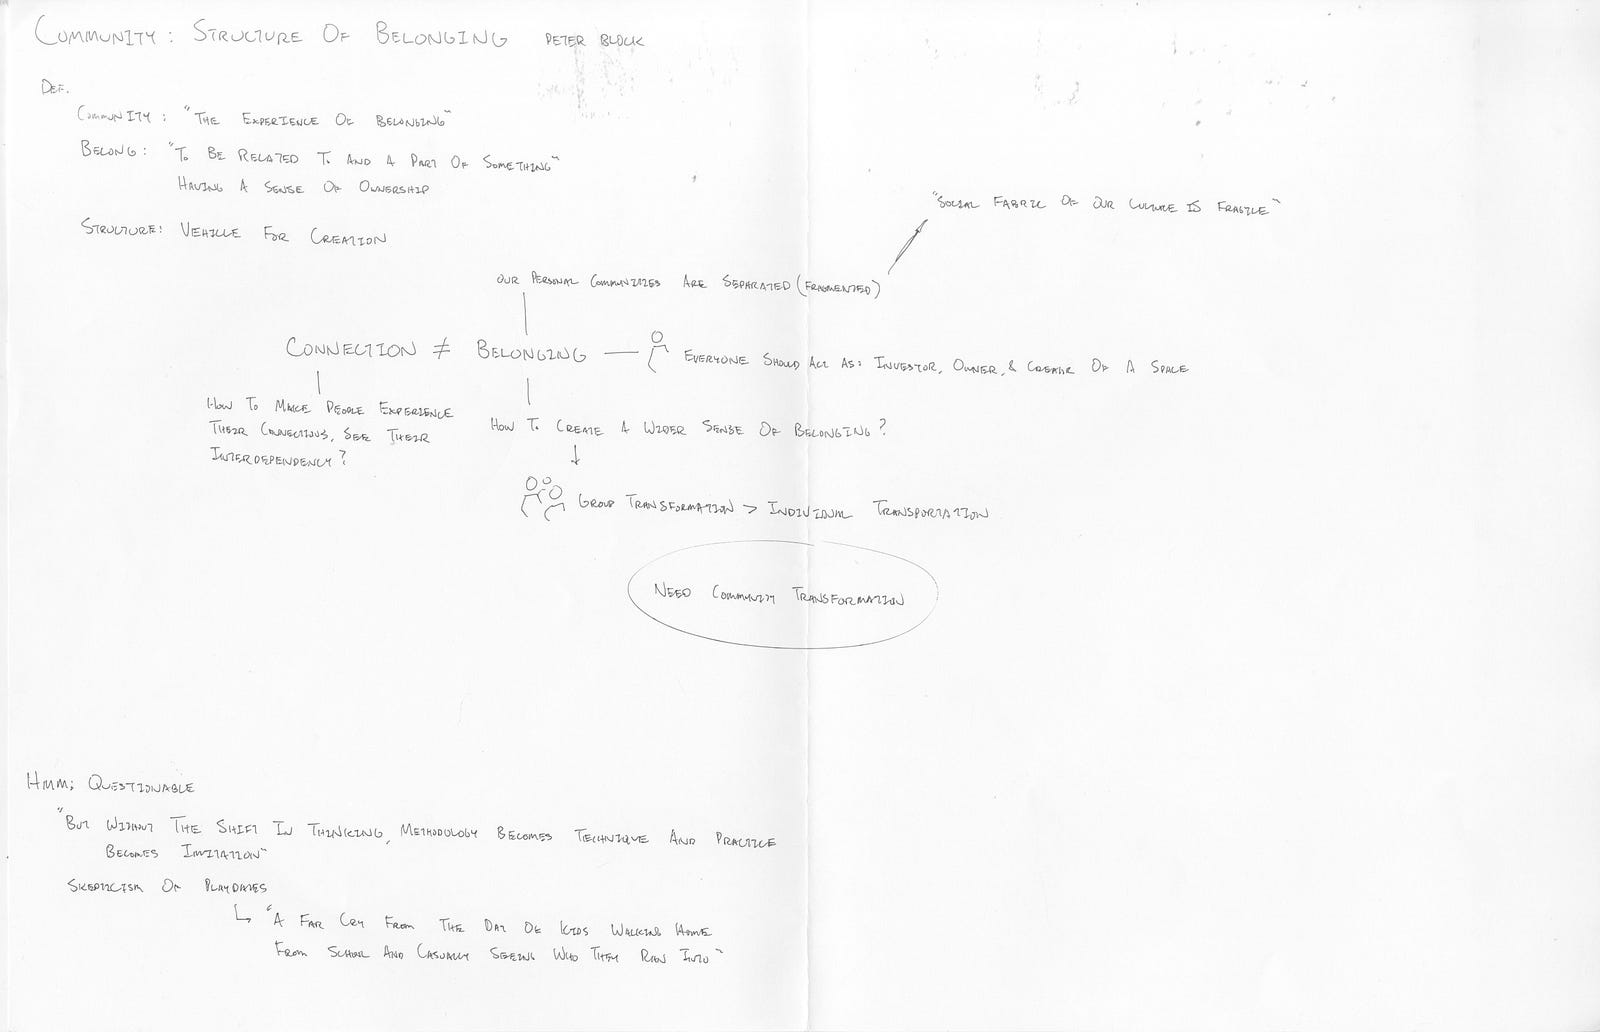 COMMUNITY: STRUCTURE OF BELONGING PETER BLOCK
DEF.
COMMUNITY: "THE EXPERIENCE OF BELONGING"
BELONG: "TO BE RELATED TO AND A PART OF SOMETHING"
HAVING A SENSE OF OWNERSHIP
STRUCTURE: VEHICLE FOR CREATION
"SOCIAL FABRIC OF OUR CULTURE IS FRAGILE"
OUR PERSONAL COMMUNITIES ARE SEPARATED (FRAGMENTED)
CONNECTION ≠ BELONGING
EVERYONE SHOULD ACT AS: INVESTOR, OWNER, & CREATOR OF A SPACE
HOW TO MAKE PEOPLE EXPERIENCE
THEIR CONNECTIONS, SEE THEIR
INTERDEPENDENCY?
HOW TO CREATE A WIDER SENSE OF BELONGING?
GROUP TRANSFORMATION > INDIVIDUAL TRANSPORTATION
NEED COMMUNITY TRANSFORMATION
HMM; QUESTIONABLE
"BUT WITHOUT THE SHIFT IN THINKING, METHODOLOGY BECOMES TECHNIQUE AND PRACTICE
BECOMES IMITATION"
SKEPTICISM OF PLAYDATES
"A FAR CRY FROM THE DAY OF KIDS WALKING HOME
FROM SCHOOL AND CASUALLY SEEING WHO THEY RAN INTO"